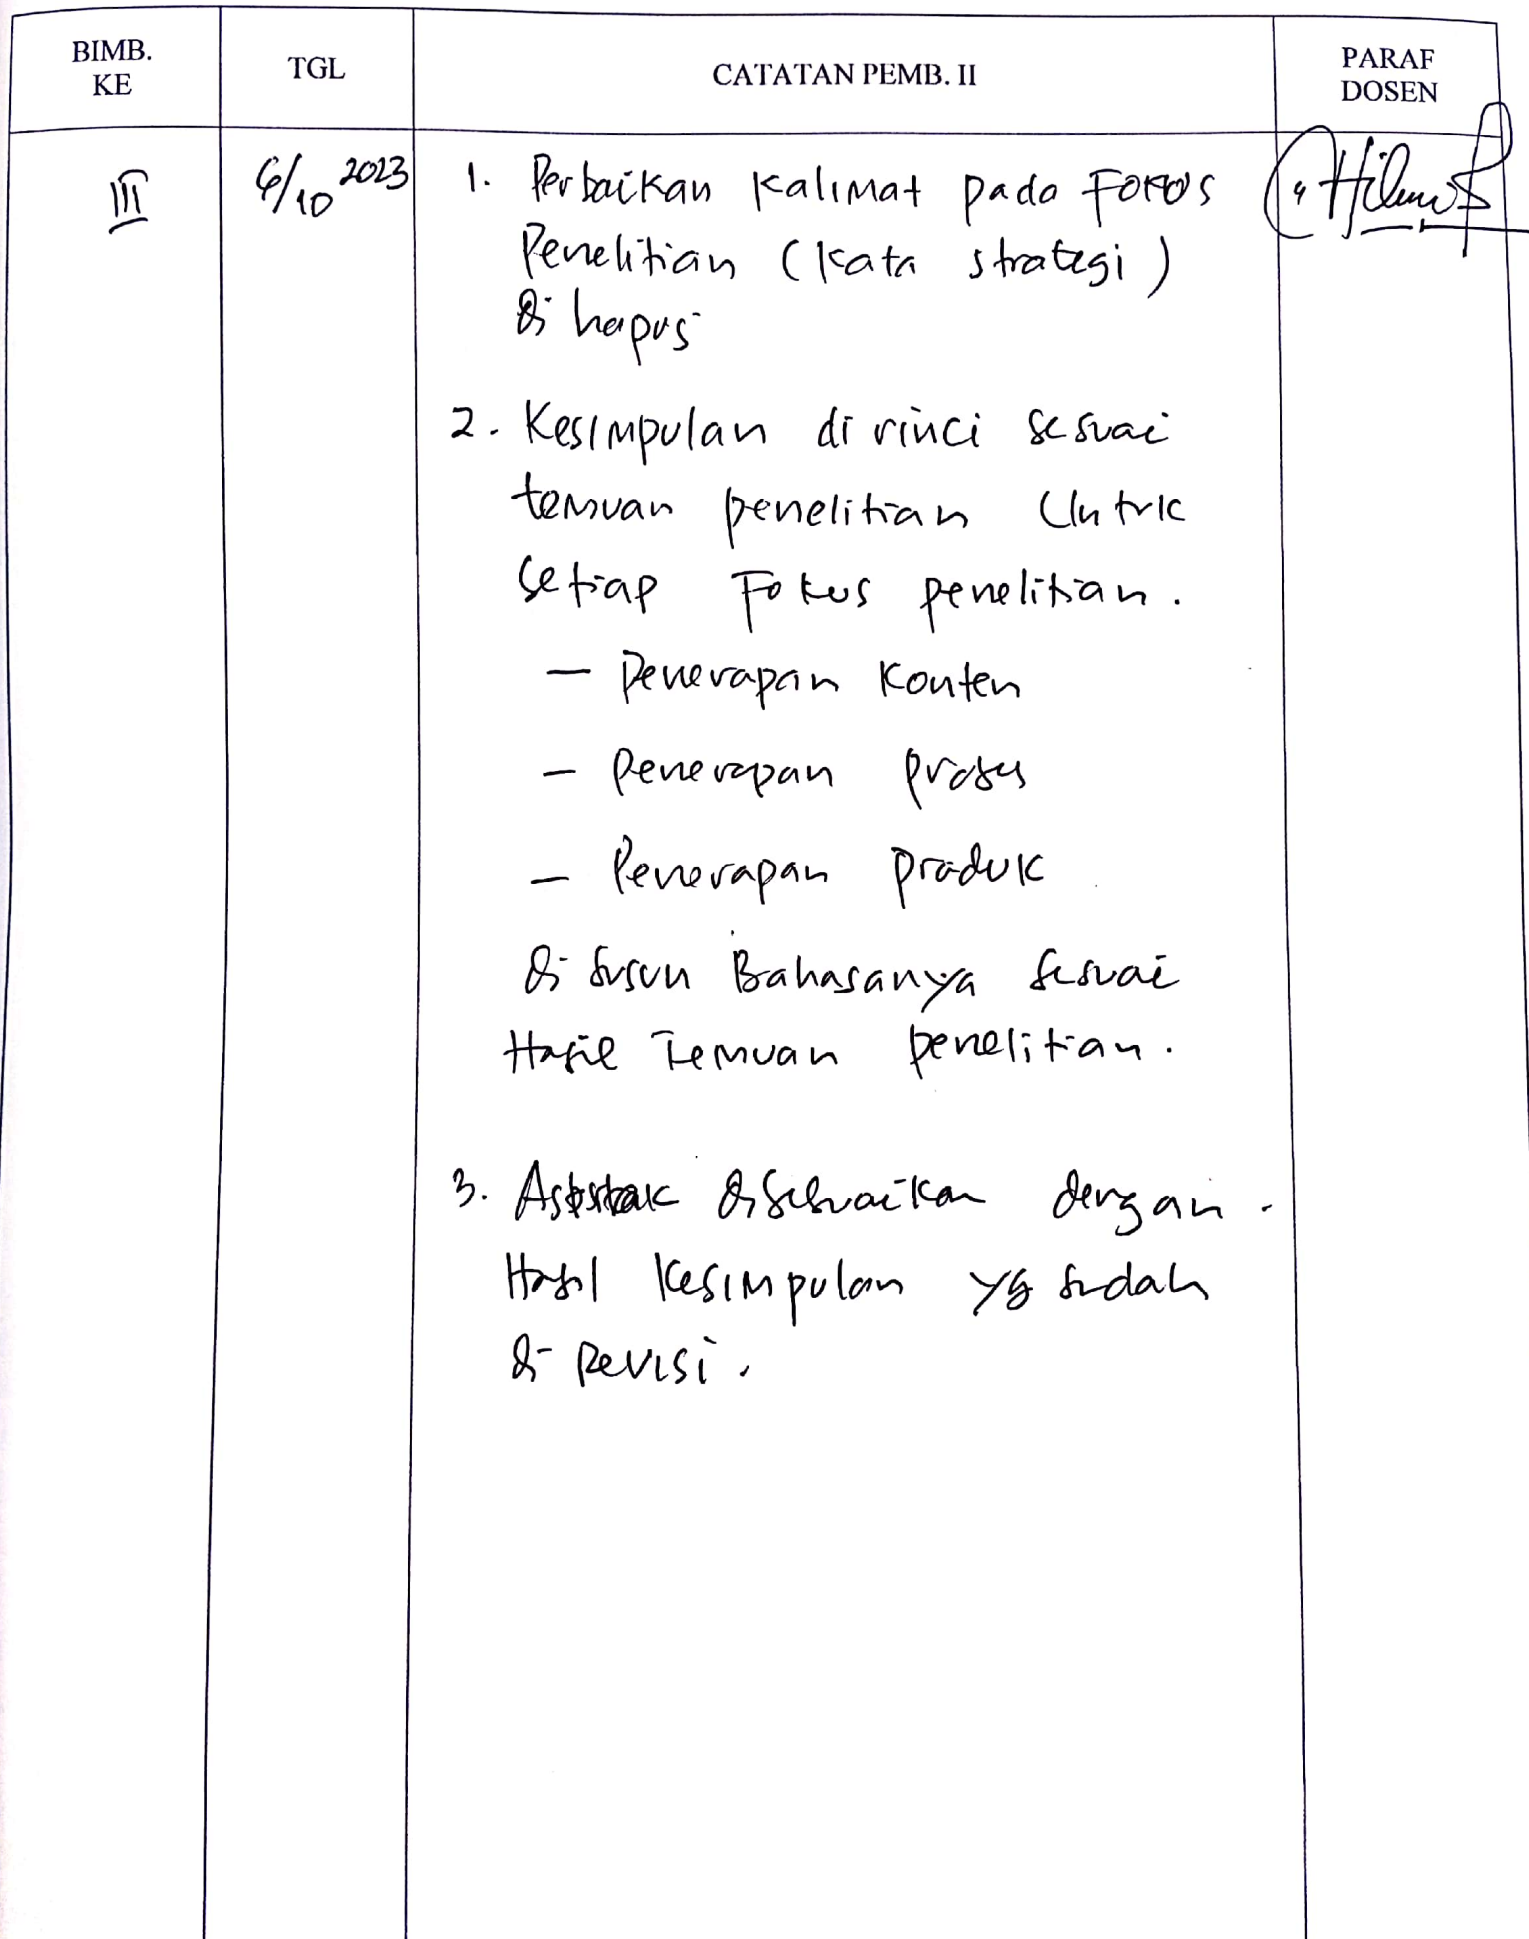 BIMB.
KE
TGL
CATATAN PEMB. II
PARAF
DOSEN
III
6/10 2023
1. Perbaikan kalimat pada Fokus
Penelitian (kata strategi)
di hapus
2. Kesimpulan di rinci sesuai
temuan penelitian Untuk
setiap Fokus penelitian.
- Penerapan Konten
- Penerapan proses
- Penerapan produk
di susun Bahasanya sesuai
Hasil Temuan penelitian.
3. Abstrak disesuaikan dengan
Hasil Kesimpulan yg sudah
di Revisi.